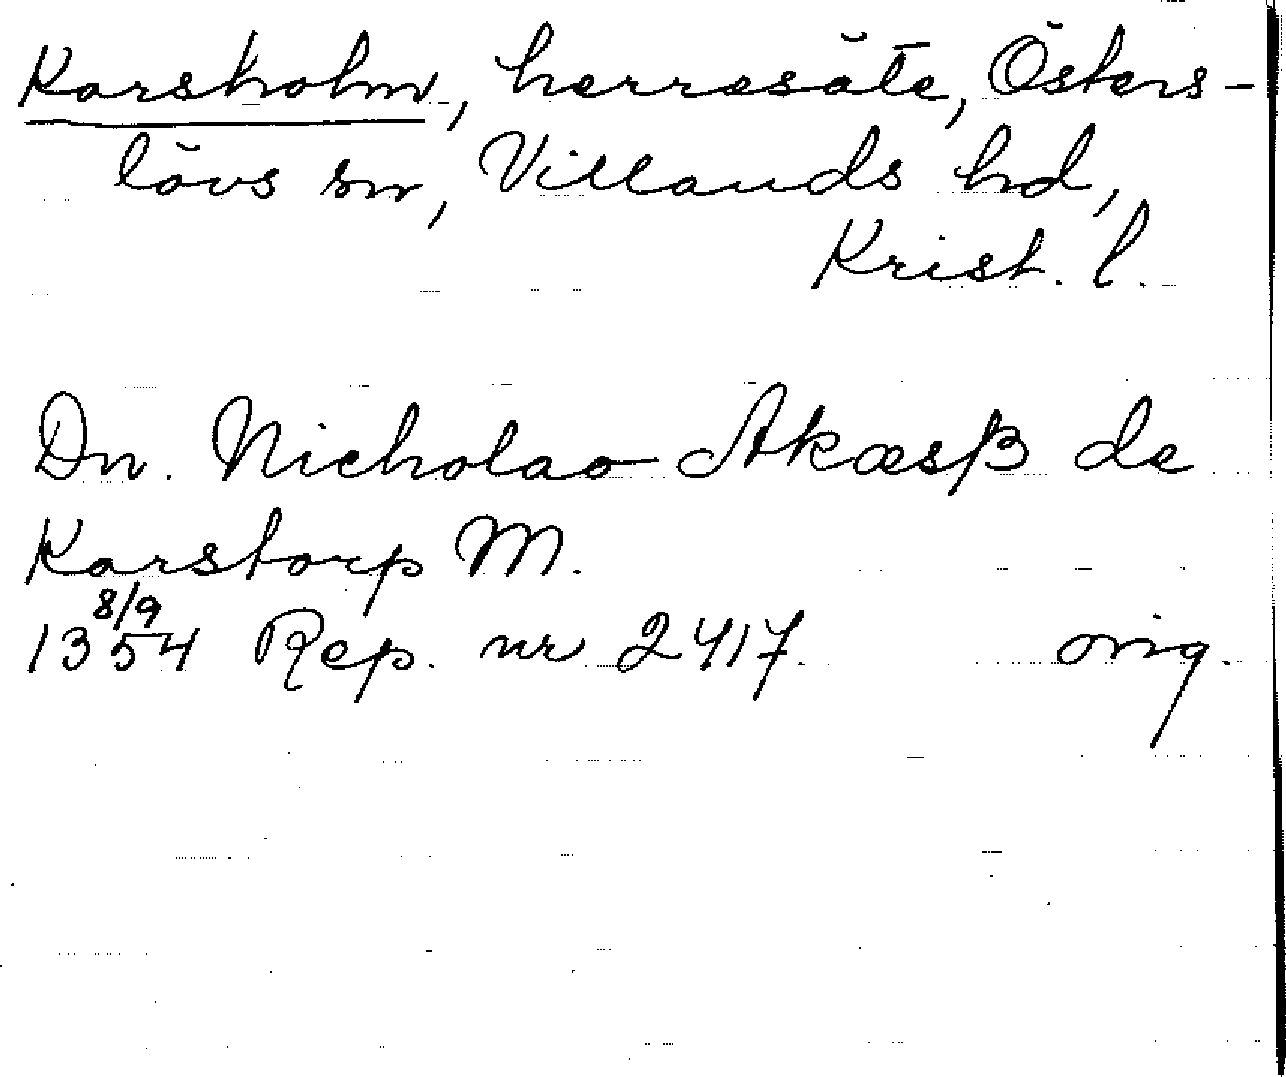 Karsholm, herresäte, Östers-
lövs sn, Villands hd,
Krist. l.
Dn. Nicholao Akæsß de
Karstorp M.
8/9
1354 Rep. nr 2417. orig.